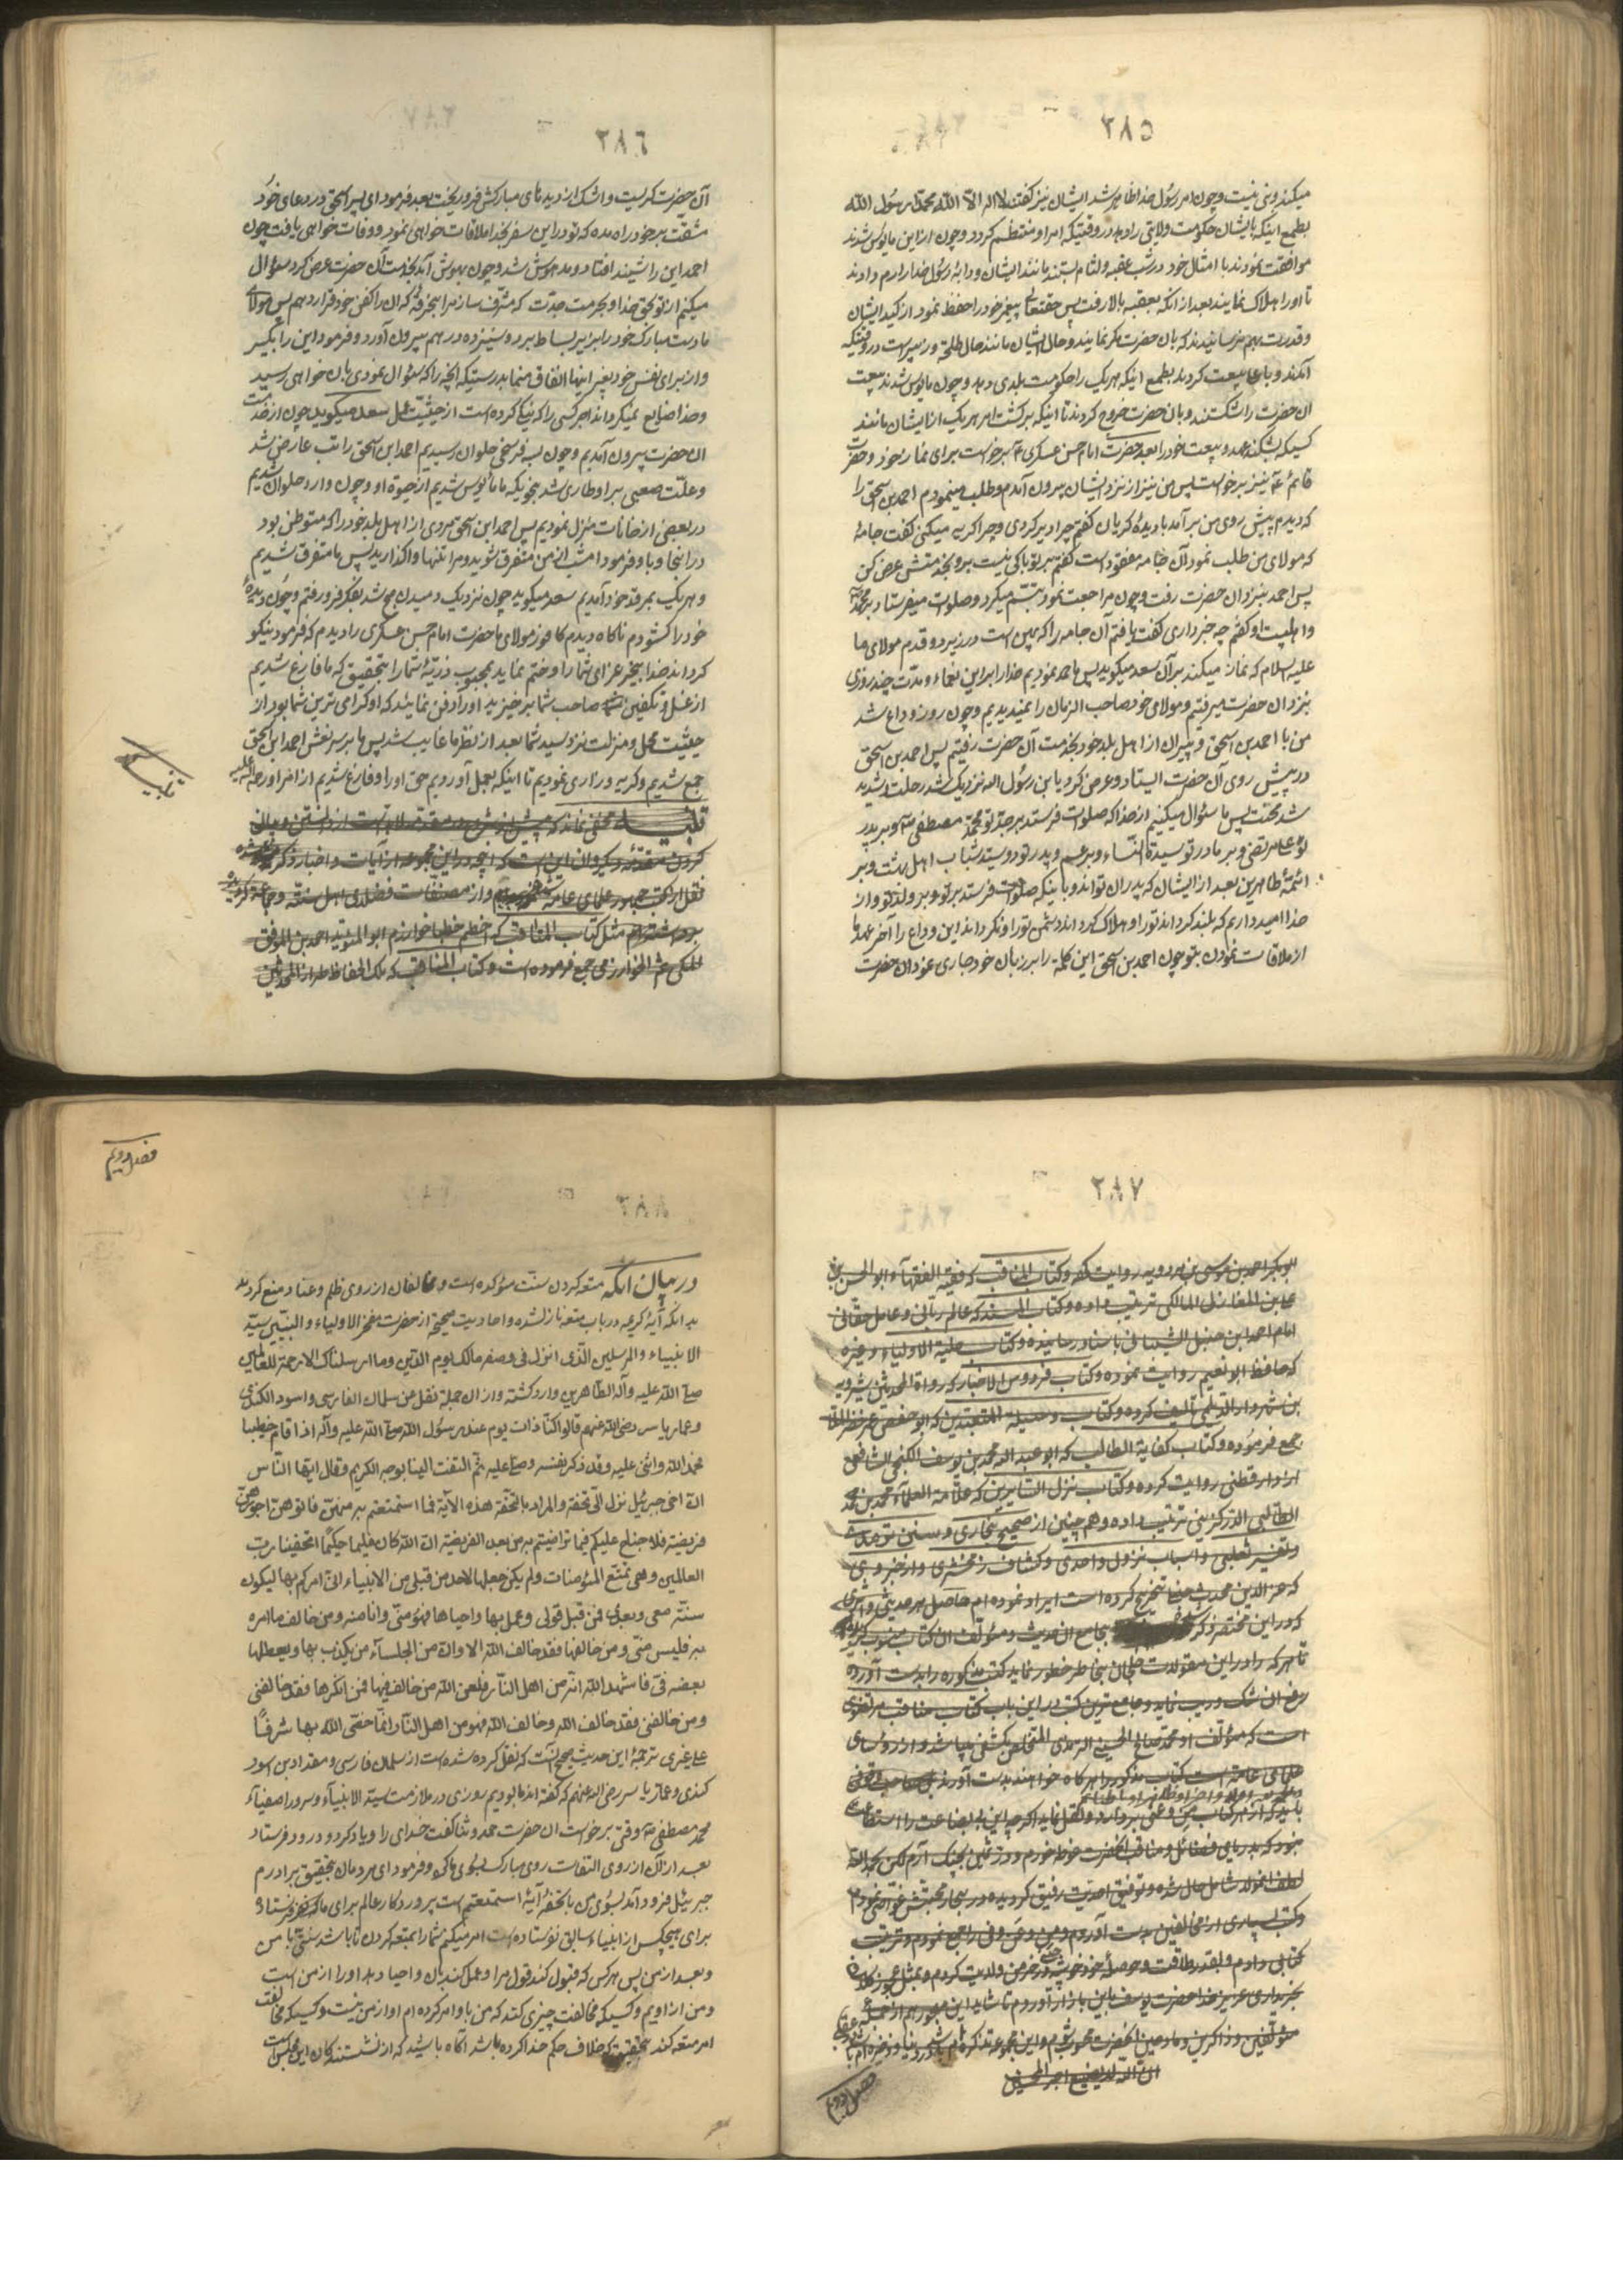 ۲۸۵
میکند وثنی نیست وچون امر رسول خدا ظاهر شد ایشان نیز گفتند لا اله الا الله محمد رسول الله
بطمع اینکه بایشان حکومت ولایتی را دهد در وقتیکه امر او منتظم گردد وچون از این مایوس شدند
موافقت نمودند با امثال خود در شب عقبه ولثام بستند مانند ایشان ودابهٔ رسول خدا را رم دادند
تا او را هلاک نمایند بعد از انکه بعقبه بالا رفت پس حقتعالی پیغمبر خود را حفظ نمود از کید ایشان
وقدرت بهم نرسانیدند که بان حضرت مکر نمایند وحال ایشان مانند حال طلحه وزبیر است در وقتیکه
آمدند وبا علی بیعت کردند بطمع اینکه بهر یک را حکومت بلدی دهد وچون مایوس شدند بیعت
ان حضرت را شکستند وبان حضرت خروج کردند تا اینکه برگشت امر هر یک از ایشان مانند
کسیکه بشکند عهد وبیعت خود را بعد حضرت امام حسن عسکری ع برخواست برای نماز خود وحضرت
قائم ع نیز برخواست پس من نیز از نزد ایشان بیرون آمدم وطلب مینمودم احمد بن اسحق را
که دیدم پیش روی من برآمد با دیدهٔ گریان گفتم چرا دیر کردی وچرا گریه میکنی گفت جامهٔ
که مولای من طلب نمود آن جامه مفقود است گفتم بر تو باکی نیست برو بخدمتش عرض کن
پس احمد بنزد ان حضرت رفت وچون مراجعت نمود تبسم میکرد وصلوات میفرستاد بر محمد
واهلبیت او گفتم چه خبر داری گفت یافتم آن جامه را که پهن است در زیر دو قدم مولای ما
علیه السلام که نماز میکند بر آن سعد میکوید پس ما حمد نمودیم خدا را بر این نعماء ومدت چند روزی
بنزد ان حضرت میرفتیم ومولای خود صاحب الزمان را نمیدیدیم وچون روز وداع شد
من با احمد بن اسحق وپیران از اهل بلد خود بخدمت آن حضرت رفتیم پس احمد بن اسحق
در پیش روی آن حضرت ایستاد وعرض کرد یا بن رسول الله نزدیک شد رحلت وشدید
شد محنت پس ما سئوال میکنیم از خدا که صلوات فرستد بر جد تو محمد مصطفی ص وبر پدر
تو علی مرتضی وبر مادر تو سیدة النساء وبر عم وپدر تو دو سید شباب اهل بهشت وبر
ائمهٔ طاهرین بعد از ایشان که پدران تواند وباینکه صلوات فرستد بر تو وبر ولد تو واز
خدا امید داریم که بلند گرداند تو را وهلاک گرداند دشمن تو را ونگرداند این وداع را آخر عهد ما
از ملاقات نمودن بتو چون احمد بن اسحق این کلمه را بر زبان خود جاری نمود ان حضرت
۲۸۶
آن حضرت گریست واشک از دیدهای مبارکش فرو ریخت بعد فرمود ای پسر اسحق در دعای خود
مشقت بر خود راه مده که تو در این سفر بخدا ملاقات خواهی نمود ووفات خواهی یافت چون
احمد این را شنید افتاد ومدهوش شد وچون بهوش آمد بخدمت آن حضرت عرض کرد سئوال
میکنم از تو بحق خدا وبحرمت جدت که مشرف ساز مرا بخرقهٔ که ان را کفن خود قرار دهم پس مولای
ما دست مبارک خود را بزیر بساط برد وسیزده درهم بیرون آورد وفرمود این را بگیر
واز برای نفس خود بغیر اینها انفاق منما بدرستیکه آنچه را که سئوال نمودی بان خواهی رسید
وخدا ضایع نمیگرداند اجر کسی را که نیکو کرده است از حیثیت عمل سعد میکوید چون از خدمت
ان حضرت بیرون آمدیم وچون بسه فرسخی حلوان رسیدیم احمد ابن اسحق را تب عارض شد
وعلت صعبی بر او طاری شد بنحویکه ما مایوس شدیم از حیوة او وچون وارد حلوان شدیم
در بعضی از خانات منزل نمودیم پس احمد ابن اسحق مردی از اهل بلد خود را که متوطن بود
در انجا وباو فرمود امشب از من متفرق شوید ومرا تنها واگذارید پس ما متفرق شدیم
وهر یک بمرقد خود آمدیم سعد میکوید چون نزدیک دمیدن صبح شد بفکر فرو رفتم وچون دیدهٔ
خود را گشودم ناگاه دیدم کافور مولای ما حضرت امام حسن عسکری را دیدم که فرمود نیکو
گرداند خدا بخیر عزای شما را وختم نماید بمحبوب رزیهٔ شما را بتحقیق که ما فارغ شدیم
از غسل وتکفین صاحب شما برخیزید او را دفن نمائید که او گرامی ترین شما بود از
حیثیت محل ومنزلت نزد سید شما بعد از نظر ما غایب شد پس ما بر سر نعش احمد ابن اسحق
جمع شدیم وگریه وزاری نمودیم تا اینکه بعمل آوردیم حق او را وفارغ شدیم از امر او رحمة الله علیه
تنبیه
تنبیه مخفی نماند که پیش از شروع در مقصد لازم است از دانستن وبیان
کردن مقدمهٔ دیگر وان این است که آنچه در این مجموعه از آیات واخبار ذکر شده
نقل از کتب جمهور علمای عامه واز مصنفات فضلای اهل سنت وجماعت
مثل کتاب المناقب که اخطب خطبا خوارزم ابو الموید احمد بن الموفق
المکی ثم الخوارزمی جمع فرموده است وکتاب المناقب که ملک الحفاظ طراز المحدثین
۲۸۷
ابوبکر احمد بن موسی بن مردویه روایت کرده وکتاب المناقب که فقیه الفقهاء ابو الحسن بن
علی بن المغازلی المالکی ترتیب داده وکتاب المسند که عالم ربانی وعامل حقانی
امام احمد ابن حنبل الشیبانی باسناد رسانیده وکتاب حلیة الاولیاء وغیره
که حافظ ابو نعیم روایت نموده وکتاب فردوس الاخبار که رواة المحدثین شیرویه
بن شهردار الدیلمی تالیف کرده وکتاب وسیلة المتعبدین که ابو حفص عمر خضر الملا
جمع فرموده وکتاب کفایة الطالب که ابو عبد الله محمد بن یوسف الکنجی الشافعی
از دار قطنی روایت کرده وکتاب نزل السایرین که علامة العلماء محمد بن محمد
الطالبی الدرکزینی ترتیب داده وهم چنین از صحیح بخاری وسنن ترمذی
وتفسیر ثعلبی واسباب نزول واحدی وکشاف زمخشری واز خبر وبی
که عز الدین محدث حنبلی تخریج کرده است ایراد نموده ام حاصل هر حدیثی واثری
که در این مختصر ذکر بجامع ان حدیث ومؤلف ان کتاب منسوب
تا هر که را در این مقولات خلجان بخاطر خطور نماید کتب مذکوره را بدست آورده
رفع ان شک وریب نماید وجامع ترین کتب در این باب کتاب مناقب مرتضوی
است که مؤلف او محمد صالح الحسینی الترمذی المتخلص بکشفی میباشد واز رؤسای
علمای عامه است کتاب مذکور را هر گاه خواهند بدست آورند
باید که از هر کتاب من وعن بر دارد ونقل نماید اگرچه این بی بضاعت را استطاعت
نبود که بدریای فضائل ومناقب انحضرت غوطه خورم ودر ثمین بچنک آرم لکن بحمد الله
لطف شامل حال شده وتوفیق احدیت رفیق گردیده در بحار محبتش غواصی نمودم
وکتب بسیاری از مخالفین بدست آوردم ومن وعن وفی راجع نمودم وترتیب
کتابی دادم وبقدر طاقت وحوصلهٔ خود خوشه چی خرمن ولایت کردم وبمثل عجوز کلابه
بخریداری عزیز خدا حضرت یوسف باین بازار آوردم تا شاید این مهجور هم از جملهٔ
مؤلفین وذاکرین ومادحین انحضرت محسوب شوم واین مجموعه تذکره ام باشد در دنیا وذخیره ام باشد در عقبی
ان الله لا یضیع اجر المحسنین
فصل دویم
فصل دویم
۲۸۸
در بیان آنکه متعه کردن سنت مؤکده است ومخالفان از روی ظلم وعناد منع کردند
بدانکه آیهٔ کریمه در باب متعه نازلشده واحادیث صحیحه از حضرت فخر الاولیاء والنبیین سید
الانبیاء والمرسلین الذی انزل فی وصفه مالک یوم الدین وما ارسلناک الا رحمة للعالمین
صلی الله علیه وآله الطاهرین وارد گشته واز ان جمله نقل من سلمان الفارسی واسود الکندی
وعمار یاسر رضی الله عنهم قالوا کنا ذات یوم عند رسول الله صلی الله علیه وآله اذا قام خطیبا
فحمد الله واثنی علیه وقد ذکر نفسه وصلی علیه ثم التفت الینا بوجه الکریم وقال ایها الناس
ان اخی جبرئیل نزل الی تحفة والمراد بالتحفة هذه الآیة فما استمتعتم به منهن فاتوهن اجورهن
فریضة فلا جناح علیکم فیما تراضیتم به من بعد الفریضة ان الله کان علیما حکیما اتحفینا رب
العالمین وهی تمتع المؤمنات ولم یکن جعلها لاحد من قبلی من الانبیاء انی امرکم بها لیکون
سنة معی وبعدی فمن قبل قولی وعمل بها واحیاها فهو منی وانا منه ومن خالف ما امره
به فلیس منی ومن خالفها فقد خالف الله الا وان من الجلساء من یکذب بها ویعطلها
بعضه فی فاشهد الله انه من اهل النار فلعن الله من خالف فیها فمن انکرها فقد خالفنی
ومن خالفنی فقد خالف الله وخالف الله فهو من اهل النار انما خصنی الله بها شرفا
علی غیری ترجمهٔ این حدیث صحیح آنست که نقل کرده شده است از سلمان فارسی ومقداد بن اسود
کندی وعمار یاسر رضی الله عنهم که گفته اند ما بودیم روزی در ملازمت سید الانبیاء وسرور اصفیاء
محمد مصطفی ص وقتی برخواست ان حضرت حمد وثنا گفت خدای را ویاد کرد ودرود فرستاد
بعد از آن از روی التفات روی مبارک بسوی ما کرد وفرمود ای مردمان بتحقیق برادرم
جبرئیل فرود آمد بسوی من با تحفهٔ آیهٔ استمتعتم است پروردگار عالم برای ما که تحفه فرستاد
برای هیچکس از انبیاء سابق نفرستاده است امر میکنم شما را بمتعه کردن تا باشد سنتی با من
وبعد از من پس هر کس که قبول کند قول مرا وعمل کند بان واحیا دهد او را از من است
ومن از اویم وکسیکه مخالفت چیزی کند که من باو امر کرده ام او از من نیست وکسیکه مخالفت
امر متعه کند بتحقیق که خلاف حکم خدا کرده باشد آگاه باشید که از نشستندکان این مجلس است